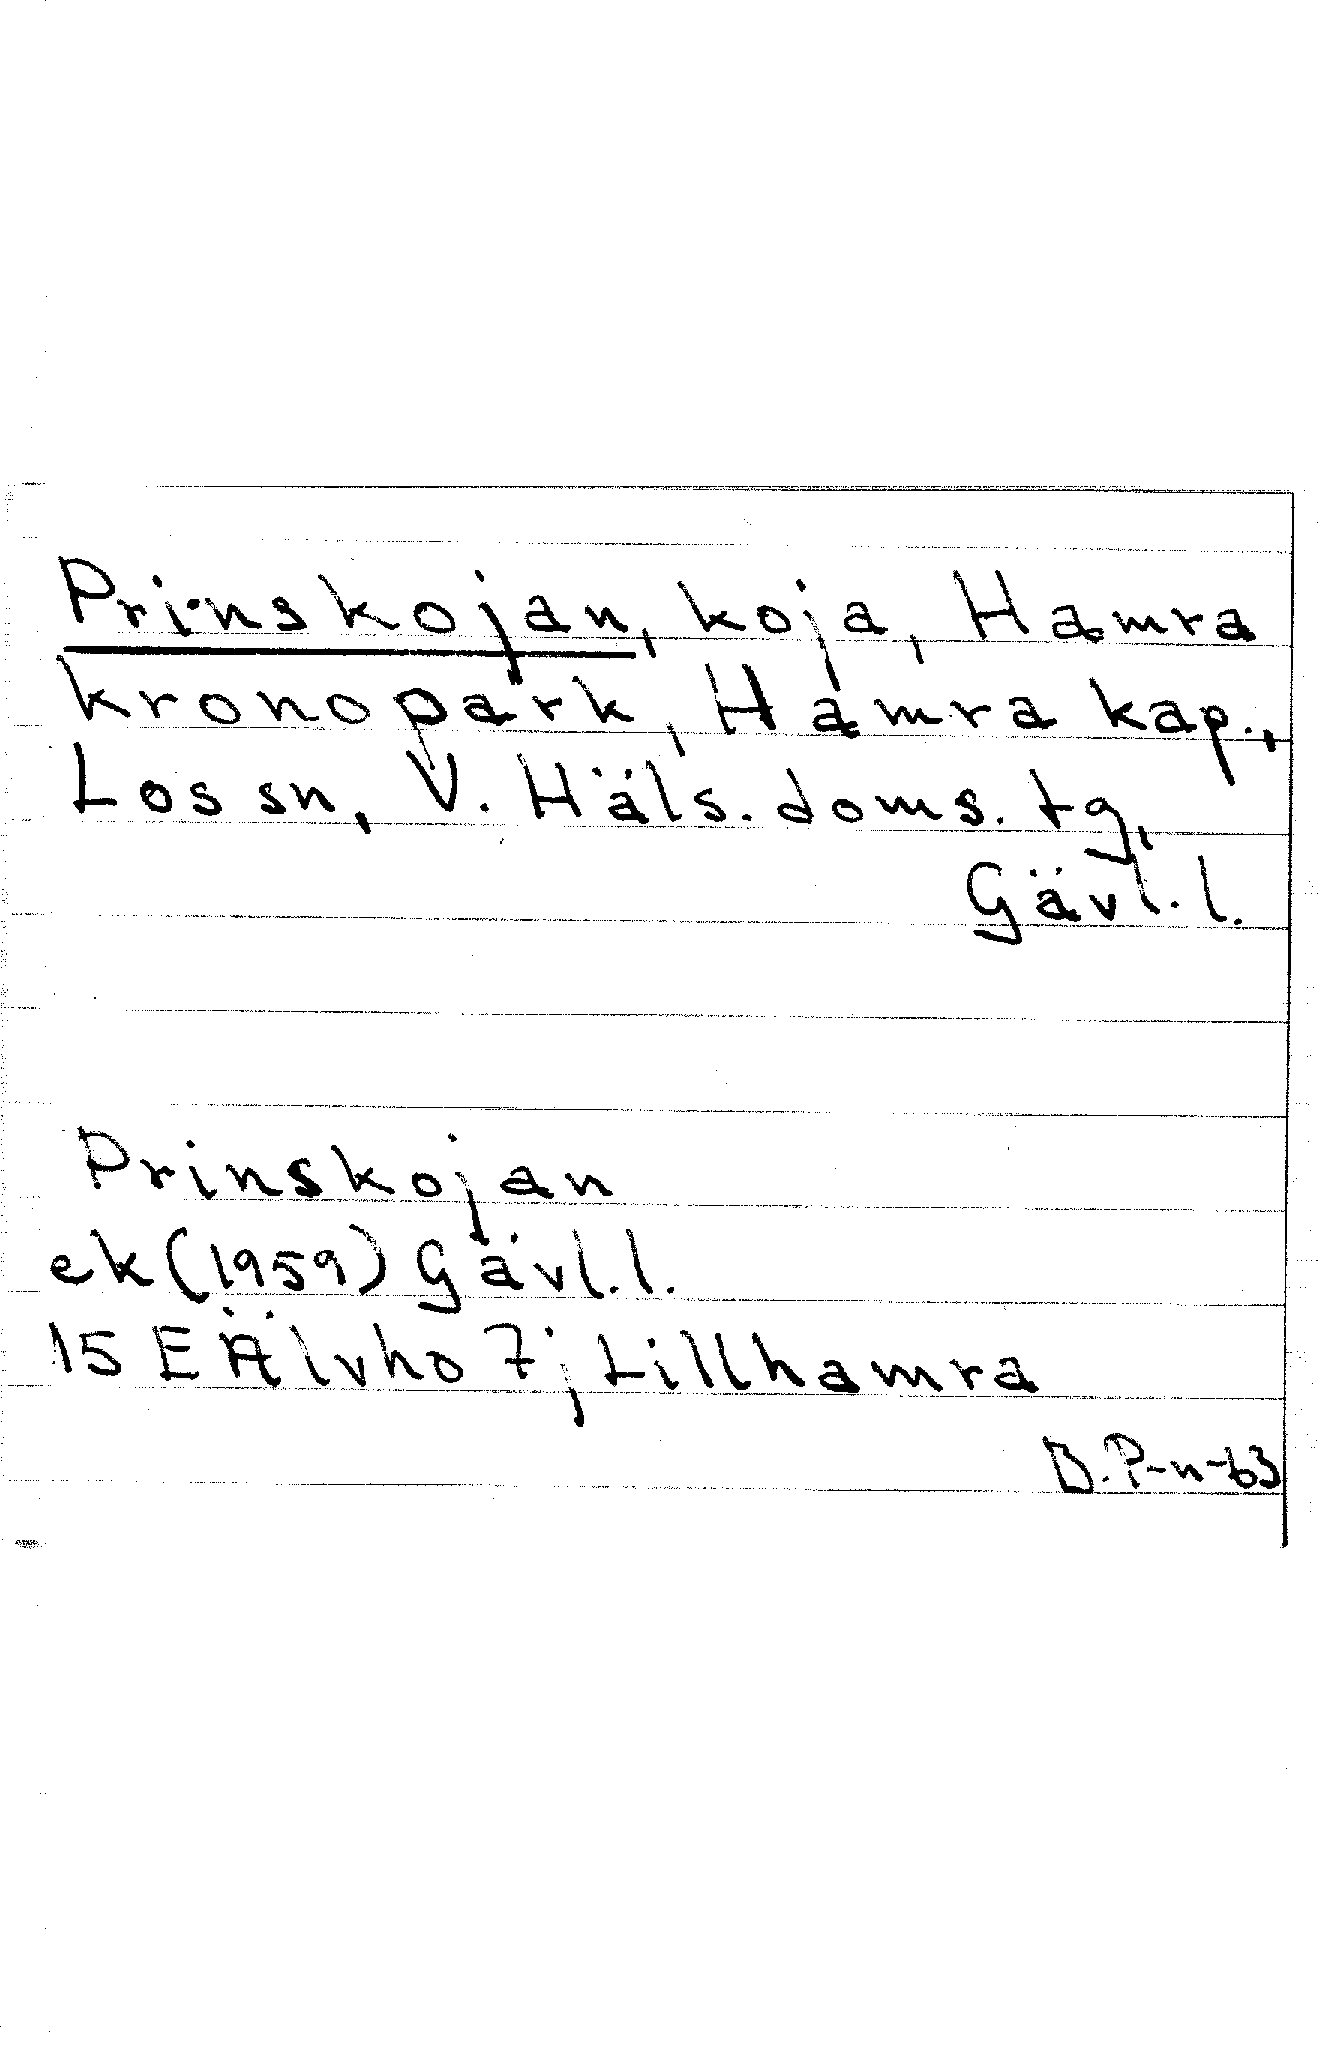 Prinskojan, koja, Hamra
kronopark, Hamra kap.,
Los sn, V. Häls. doms. tg,
Gävl. l.
Prinskojan
ek (1959) Gävl. l.
15 E Älvho 7; Lillhamra
B. P-n-63